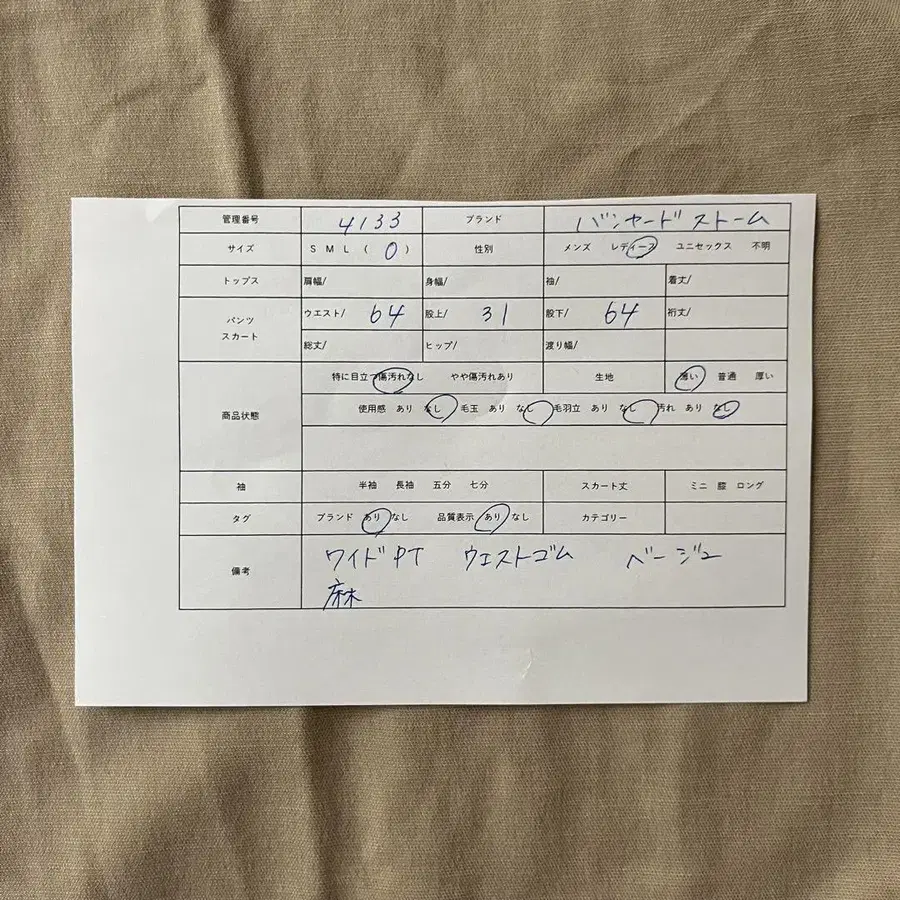 管理番号 4133 ブランド バンヤードストーム
サイズ S M L ( 0 ) 性別 メンズ レディース ユニセックス 不明
トップス 肩幅/ 身幅/ 袖/ 着丈/
パンツ スカート ウエスト/ 64 股上/ 31 股下/ 64 裄丈/
総丈/ ヒップ/ 渡り幅/
商品状態 特に目立つ傷汚れなし やや傷汚れあり 生地 薄い 普通 厚い
使用感 あり なし 毛玉 あり なし 毛羽立 あり なし 汚れ あり なし
袖 半袖 長袖 五分 七分 スカート丈 ミニ 膝 ロング
タグ ブランド あり なし 品質表示 あり なし カテゴリー
備考 ワイドPT ウエストゴム ベージュ
麻